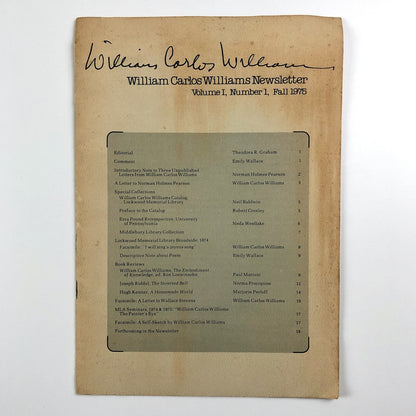 William Carlos Williams
William Carlos Williams Newsletter
Volume I, Number 1, Fall 1975
Editorial Theodora R. Graham 1
Comment Emily Wallace 1
Introductory Note to Three Unpublished
Letters from William Carlos Williams Norman Holmes Pearson 2
A Letter to Norman Holmes Pearson William Carlos Williams 2
Special Collections
William Carlos Williams Catalog
Lockwood Memorial Library Neil Baldwin 5
Preface to the Catalog Robert Creeley 5
Ezra Pound Retrospective, University
of Pennsylvania Neda Westlake 6
Middlebury Library Collection 7
Lockwood Memorial Library Broadside, 1974
Facsimile: "I will sing a joyous song" William Carlos Williams 8
Descriptive Note about Poem Emily Wallace 9
Book Reviews
William Carlos Williams, The Embodiment
of Knowledge, ed. Ron Loewinsohn Paul Mariani 9
Joseph Riddel, The Inverted Bell Norma Procopiow 11
Hugh Kenner, A Homemade World Marjorie Perloff 14
Facsimile: A Letter to Wallace Stevens William Carlos Williams 16
MLA Seminars, 1974 & 1975: "William Carlos Williams:
The Painter's Eye" 17
Facsimile: A Self-Sketch by William Carlos Williams 17
Forthcoming in the Newsletter 18